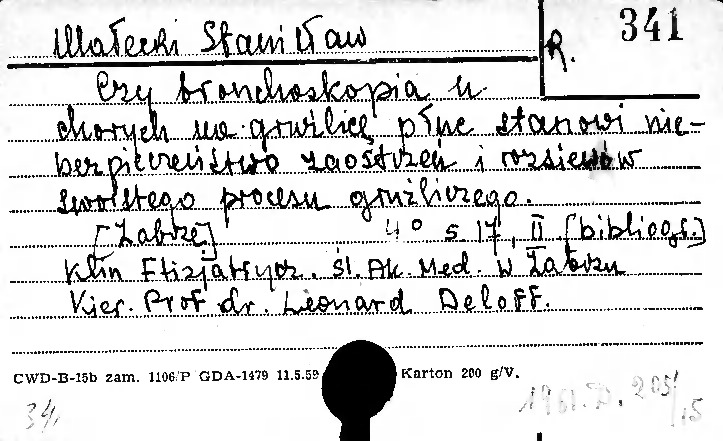 Małecki Stanisław
R. 341
Czy bronchoskopia u
chorych na gruźlicę płuc stanowi nie-
bezpieczeństwo zaostrzeń i rozsiewów
swoistego procesu gruźliczego.
[Zabrze] 4° s 17, II [bibliogr.]
Klin Ftizjatrycz. Śl. Ak. Med. w Zabrzu
Kier. Prof dr. Leonard Deloff.
CWD-B-15b zam. 1106/P GDA-1479 11.5.59 Karton 200 g/V.
34,
1961.D. 205/15